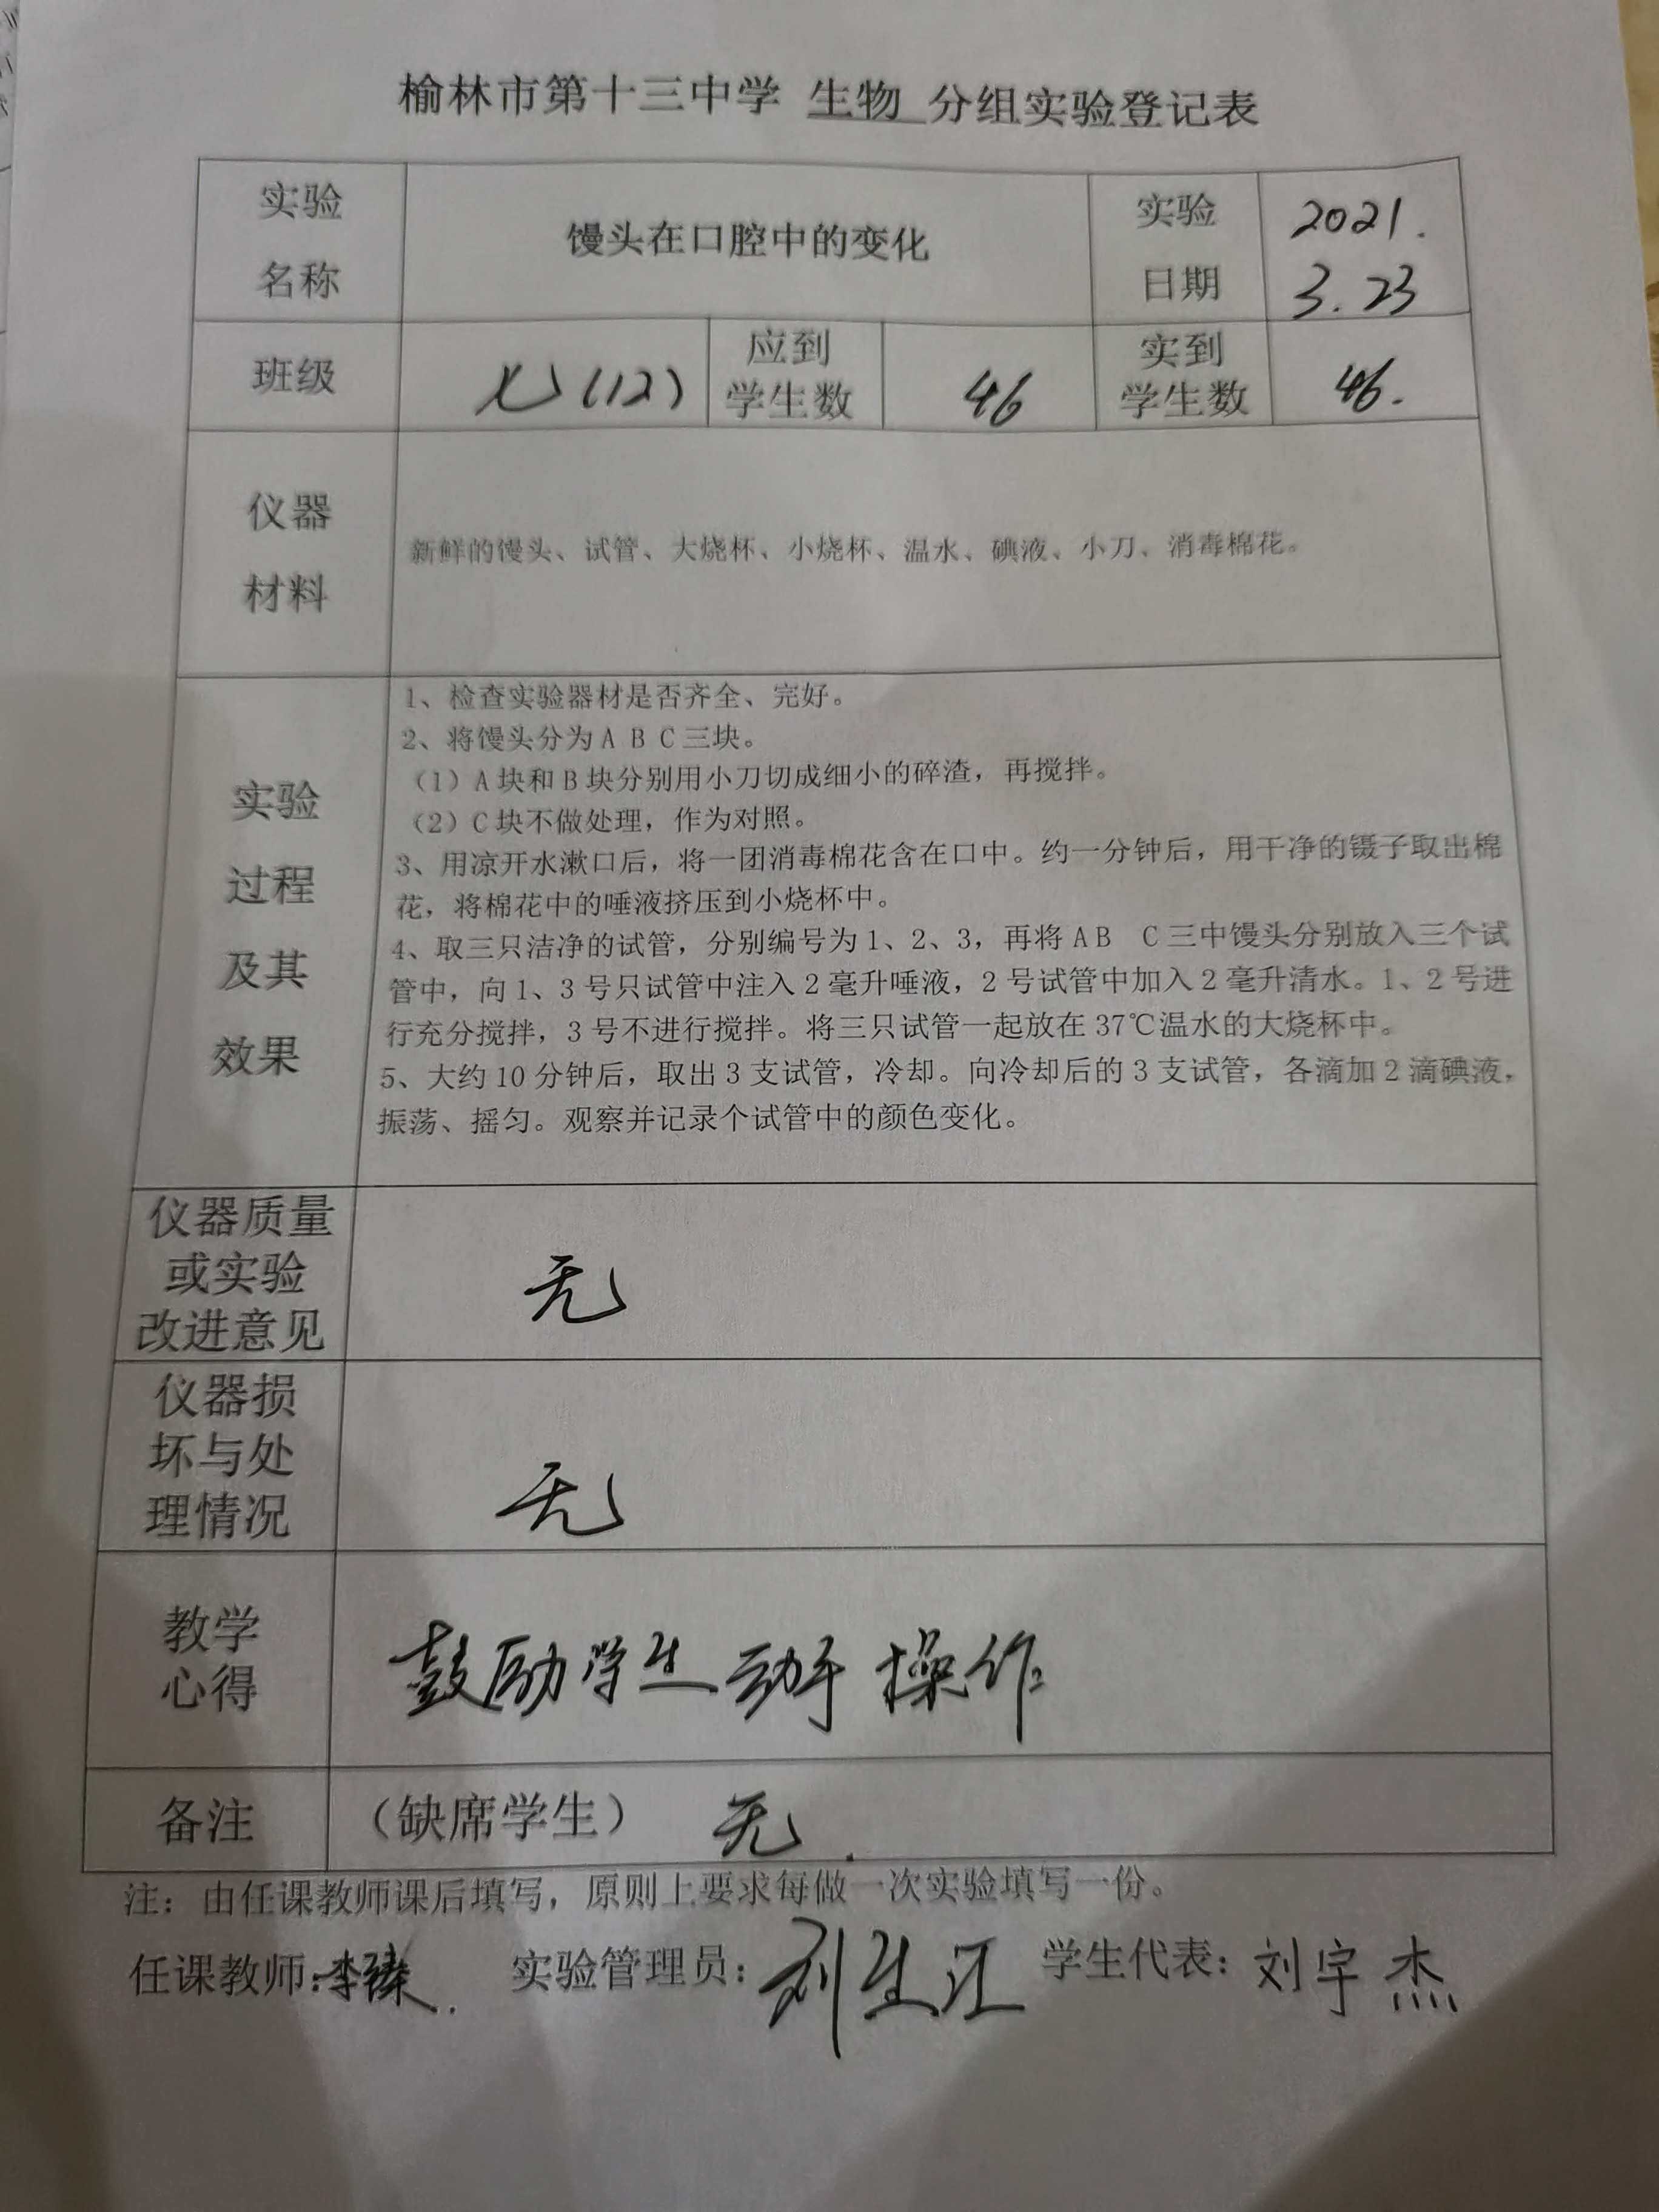 榆林市第十三中学 生物 分组实验登记表
实验名称 馒头在口腔中的变化 实验日期 2021. 3.23
班级 七(12) 应到学生数 46 实到学生数 46.
仪器材料 新鲜的馒头、试管、大烧杯、小烧杯、温水、碘液、小刀、消毒棉花。
实验过程及其效果
1、检查实验器材是否齐全、完好。
2、将馒头分为A B C三块。
（1）A块和B块分别用小刀切成细小的碎渣，再搅拌。
（2）C块不做处理，作为对照。
3、用凉开水漱口后，将一团消毒棉花含在口中。约一分钟后，用干净的镊子取出棉
花，将棉花中的唾液挤压到小烧杯中。
4、取三只洁净的试管，分别编号为1、2、3，再将AB C三中馒头分别放入三个试
管中，向1、3号只试管中注入2毫升唾液，2号试管中加入2毫升清水。1、2号进
行充分搅拌，3号不进行搅拌。将三只试管一起放在37℃温水的大烧杯中。
5、大约10分钟后，取出3支试管，冷却。向冷却后的3支试管，各滴加2滴碘液，
振荡、摇匀。观察并记录个试管中的颜色变化。
仪器质量或实验改进意见 无
仪器损坏与处理情况 无
教学心得 鼓励学生动手操作
备注 （缺席学生） 无.
注：由任课教师课后填写，原则上要求每做一次实验填写一份。
任课教师:李 实验管理员：刘生 学生代表：刘宇杰